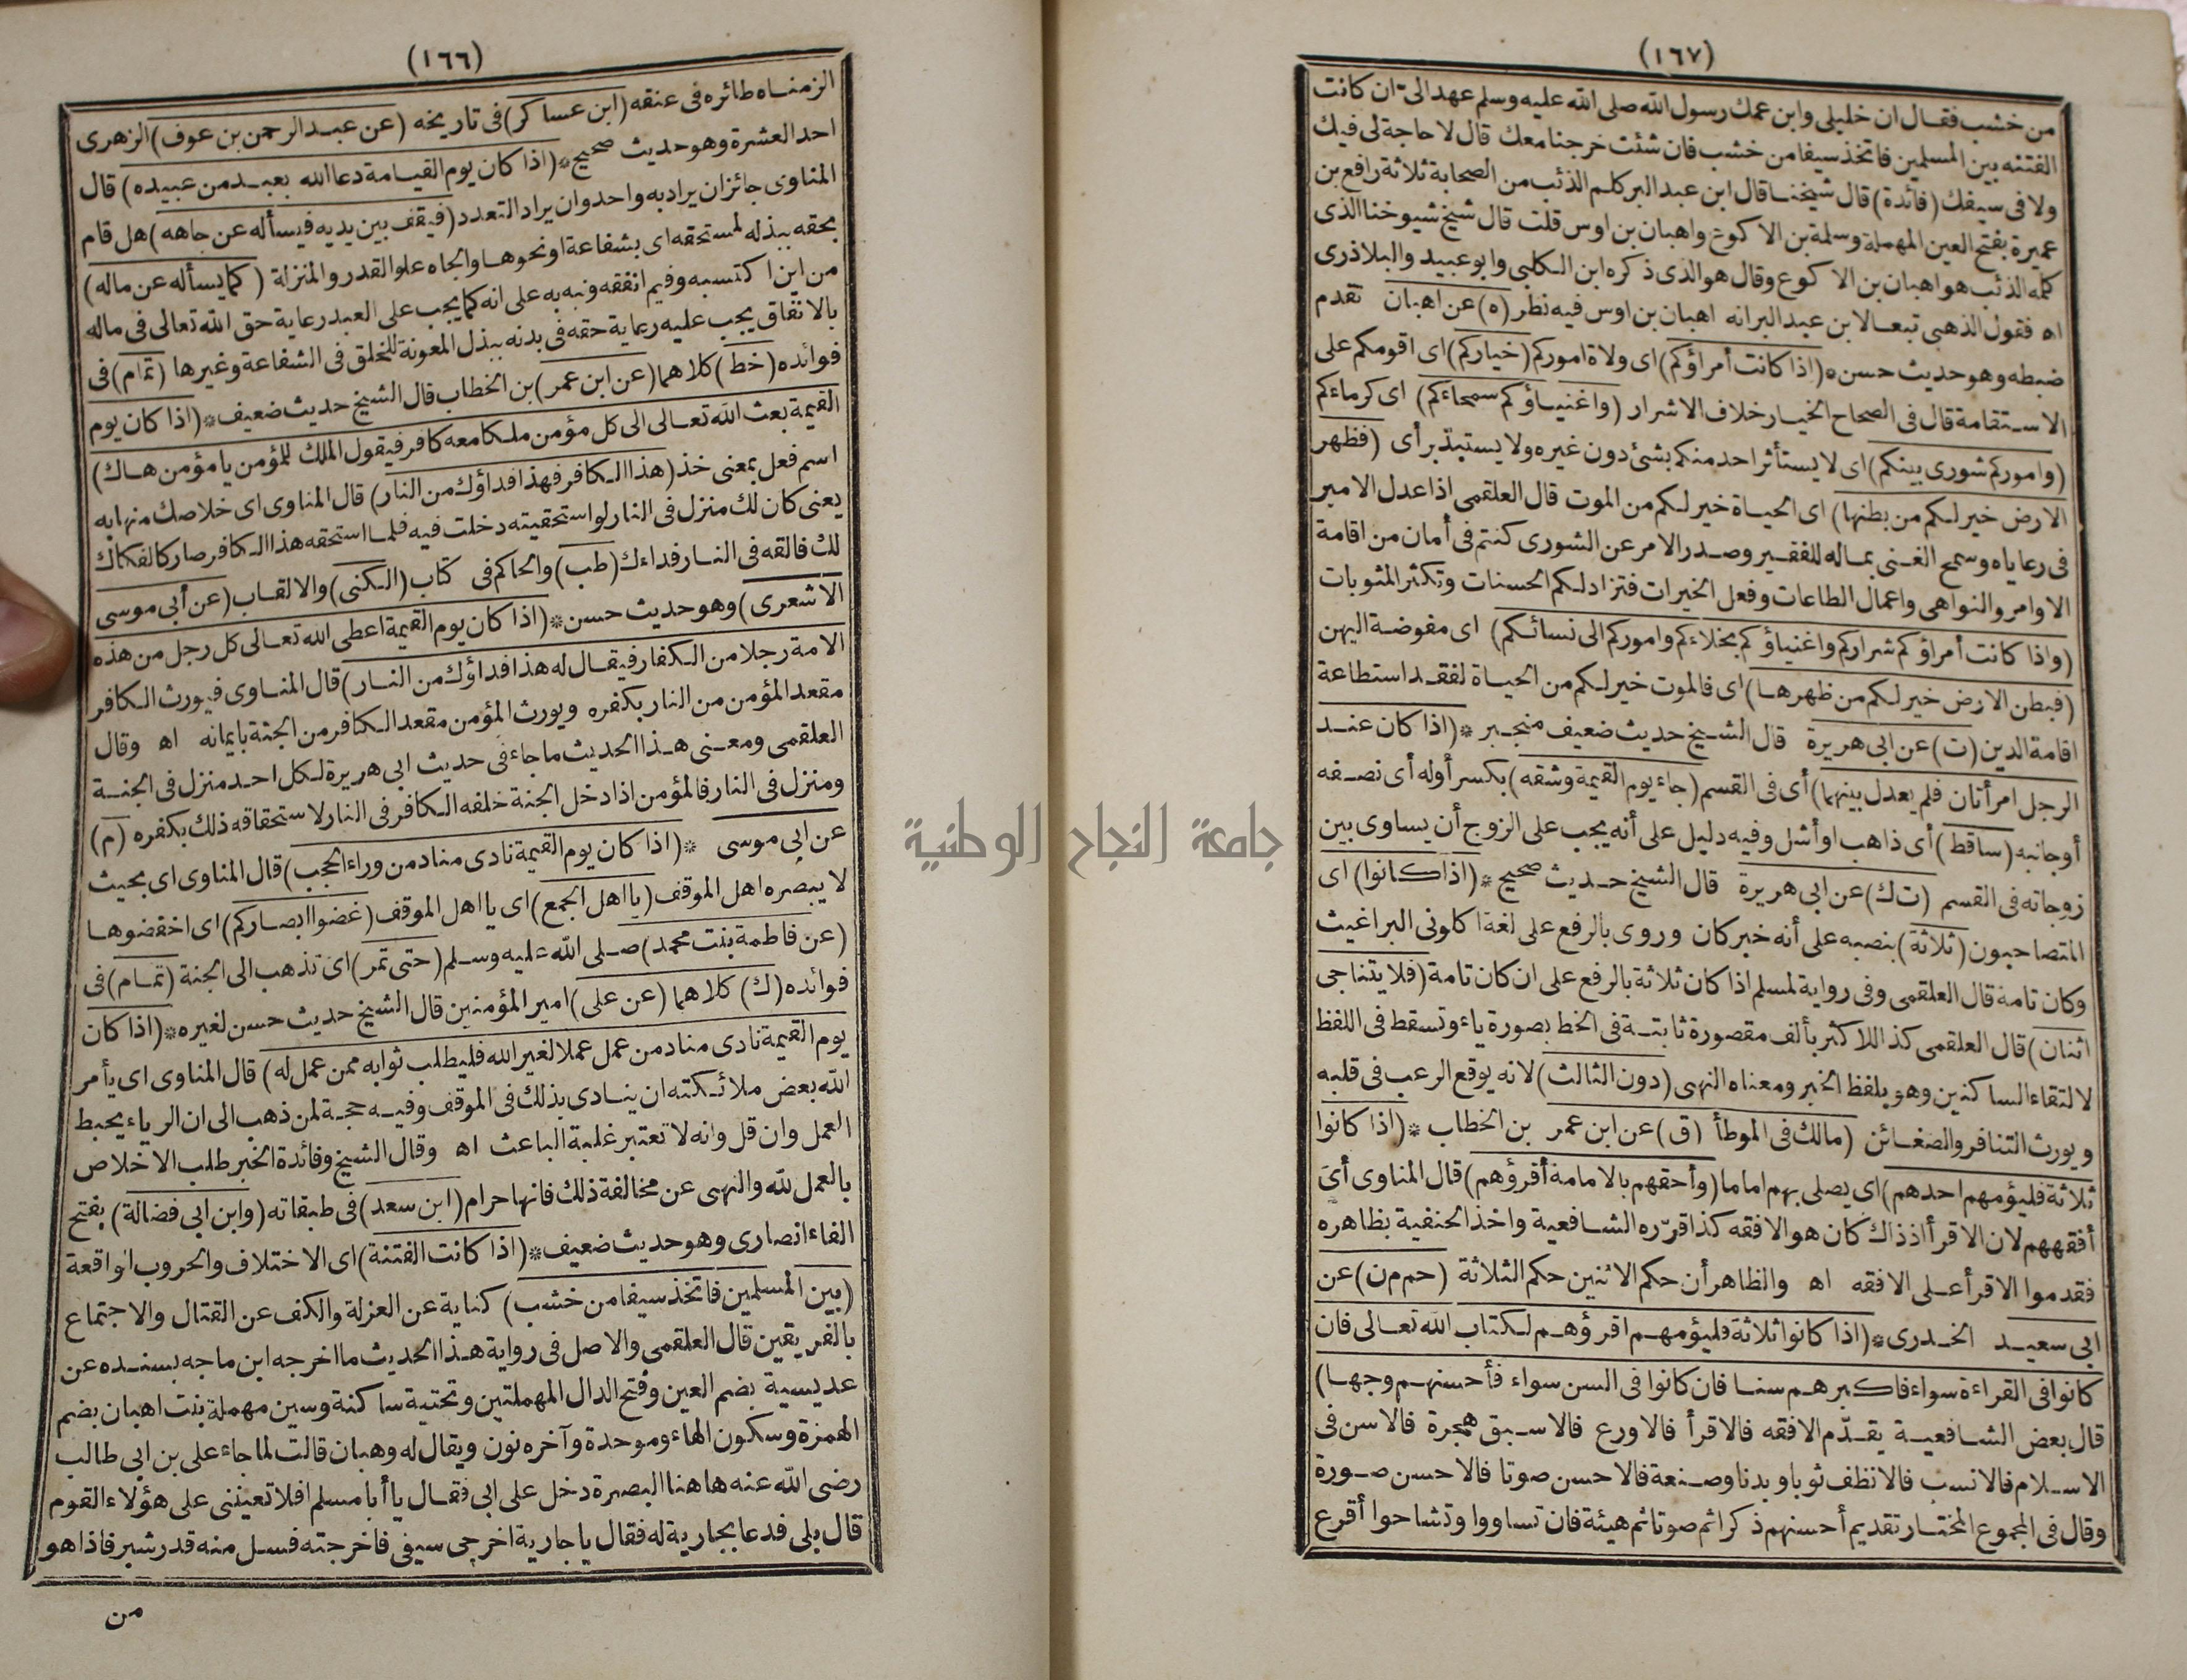 (١٦٦)
الزمناه طائره فى عنقه (ابن عساكر) فى تاريخه (عن عبد الرحمن بن عوف) الزهرى
احد العشرة وهو حديث صحيح * (اذا كان يوم القيامة دعا الله بعبد من عبيده) قال
المناوى جائز ان يراد به واحد وان يراد التعدد (فيقف بين يديه فيسأله عن جاهه) هل قام
بحقه ببذله لمستحقه اى بشفاعة او نحوها والجاه علو القدر والمنزلة (كما يسأله عن ماله)
من اين اكتسبه وفيم انفقه ونبه به على انه كما يجب على العبد رعاية حق الله تعالى فى ماله
بالانفاق يجب عليه رعاية حقه فى بدنه ببذل المعونة للخلق فى الشفاعة وغيرها (تمام) فى
فوائده (خط) كلاهما (عن ابن عمر) بن الخطاب قال الشيخ حديث ضعيف * (اذا كان يوم
القيمة بعث الله تعالى الى كل مؤمن ملكا معه كافر فيقول الملك للمؤمن يا مؤمن هاك)
اسم فعل بمعنى خذ (هذا الكافر فهذا فداؤك من النار) قال المناوى اى خلاصك منها به
يعنى كان لك منزل فى النار لو استحقيته دخلت فيه فلما استحقه هذا الكافر صار كالفكاك
لك فالقه فى النار فداءك (طب) والحاكم فى كتاب (الكنى) والالقاب (عن أبى موسى
الاشعرى) وهو حديث حسن * (اذا كان يوم القيمة اعطى الله تعالى كل رجل من هذه
الامة رجلا من الكفار فيقال له هذا فداؤك من النار) قال المناوى فيورث الكافر
مقعد المؤمن من النار بكفره ويورث المؤمن مقعد الكافر من الجنة بايمانه اه وقال
العلقمى ومعنى هذا الحديث ما جاء فى حديث ابى هريرة لكل احد منزل فى الجنة
ومنزل فى النار فالمؤمن اذا دخل الجنة خلفه الكافر فى النار لاستحقاقه ذلك بكفره (م)
عن ابى موسى * (اذا كان يوم القيمة نادى مناد من وراء الحجب) قال المناوى اى بحيث
لا يبصره اهل الموقف (يا اهل الجمع) اى يا اهل الموقف (غضوا ابصاركم) اى اخفضوها
(عن فاطمة بنت محمد) صلى الله عليه وسلم (حتى تمر) اى تذهب الى الجنة (تمام) فى
فوائده (ك) كلاهما (عن على) امير المؤمنين قال الشيخ حديث حسن لغيره * (اذا كان
يوم القيمة نادى مناد من عمل عملا لغير الله فليطلب ثوابه ممن عمل له) قال المناوى اى يأمر
الله بعض ملائكته ان ينادى بذلك فى الموقف وفيه حجة لمن ذهب الى ان الرياء يحبط
العمل وان قل وانه لا تعتبر غلبة الباعث اه وقال الشيخ وفائدة الخبر طلب الاخلاص
بالعمل لله والنهى عن مخالفة ذلك فانها حرام (ابن سعد) فى طبقاته (وابن ابى فضالة) بفتح
الفاء انصارى وهو حديث ضعيف * (اذا كانت الفتنة) اى الاختلاف والحروب الواقعة
(بين المسلمين فاتخذ سيفا من خشب) كناية عن العزلة والكف عن القتال والاجتماع
بالفريقين قال العلقمى والاصل فى رواية هذا الحديث ما اخرجه ابن ماجه بسنده عن
عديسية بضم العين وفتح الدال المهملتين وتحتية ساكنة وسين مهملة بنت اهبان بضم
الهمزة وسكون الهاء وموحدة وآخره نون ويقال له وهبان قالت لما جاء على بن ابى طالب
رضى الله عنه هاهنا البصرة دخل على ابى فقال يا أبا مسلم افلا تعيننى على هؤلاء القوم
قال بلى فدعا بجارية له فقال يا جارية اخرجى سيفى فاخرجته فسل منه قدر شبر فاذا هو
من
(١٦٧)
من خشب فقال ان خليلى وابن عمك رسول الله صلى الله عليه وسلم عهد الى ان كانت
الفتنه بين المسلمين فاتخذ سيفا من خشب فان شئت خرجنا معك قال لا حاجة لى فيك
ولا فى سيفك (فائدة) قال شيخنا قال ابن عبد البر كلم الذئب من الصحابة ثلاثة رافع بن
عميرة بفتح العين المهملة وسلمة بن الاكوع واهبان بن اوس قلت قال شيخ شيوخنا الذى
كلمه الذئب هو اهبان بن الاكوع وقال هو الذى ذكره ابن الكلبى وابو عبيد والبلاذرى
اه فقول الذهبى تبعا لابن عبد البر انه اهبان بن اوس فيه نظر (ه) عن اهبان تقدم
ضبطه وهو حديث حسن * (اذا كانت أمراؤكم) اى ولاة اموركم (خياركم) اى اقومكم على
الاستقامة قال فى الصحاح الخيار خلاف الاشرار (واغنياؤكم سمحاءكم) اى كرماءكم
(واموركم شورى بينكم) اى لا يستأثر احد منكم بشئ دون غيره ولا يستبد برأى (فظهر
الارض خير لكم من بطنها) اى الحياة خير لكم من الموت قال العلقمى اذا عدل الامير
فى رعاياه وسمح الغنى بماله للفقير وصدر الامر عن الشورى كنتم فى أمان من اقامة
الاوامر والنواهى واعمال الطاعات وفعل الخيرات فتزاد لكم الحسنات وتكثر المثوبات
(واذا كانت أمراؤكم شراركم واغنياؤكم بخلاءكم واموركم الى نسائكم) اى مفوضة اليهن
(فبطن الارض خير لكم من ظهرها) اى فالموت خير لكم من الحياة لفقد استطاعة
اقامة الدين (ت) عن ابى هريرة قال الشيخ حديث ضعيف منجبر * (اذا كان عند
الرجل امرأتان فلم يعدل بينهما) أى فى القسم (جاء يوم القيمة وشقه) بكسر أوله أى نصفه
أو جانبه (ساقط) أى ذاهب او أشل وفيه دليل على أنه يجب على الزوج أن يساوى بين
زوجاته فى القسم (ت ك) عن ابى هريرة قال الشيخ حديث صحيح * (اذا كانوا) اى
المتصاحبون (ثلاثة) بنصبه على أنه خبر كان وروى بالرفع على لغة اكلونى البراغيث
وكان تامة قال العلقمى وفى رواية لمسلم اذا كان ثلاثة بالرفع على ان كان تامة (فلا يتناجى
اثنان) قال العلقمى كذا للاكثر بألف مقصورة ثابتة فى الخط بصورة ياء وتسقط فى اللفظ
لالتقاء الساكنين وهو بلفظ الخبر ومعناه النهى (دون الثالث) لانه يوقع الرعب فى قلبه
ويورث التنافر والضغائن (مالك فى الموطأ (ق) عن ابن عمر بن الخطاب * (اذا كانوا
ثلاثة فليؤمهم احدهم) اى يصلى بهم اماما (وأحقهم بالامامة أقرؤهم) قال المناوى أى
أفقههم لان الاقرأ اذ ذاك كان هو الافقه كذا قرّره الشافعية واخذ الحنفية بظاهره
فقدموا الاقرأ على الافقه اه والظاهر أن حكم الاثنين حكم الثلاثة (حم م ن) عن
ابى سعيد الخدرى * (اذا كانوا ثلاثة فليؤمهم اقرؤهم لكتاب الله تعالى فان
كانوا فى القراءة سواء فاكبرهم سنا فان كانوا فى السن سواء فأحسنهم وجها)
قال بعض الشافعية يقدّم الافقه فالاقرأ فالاورع فالاسبق هجرة فالاسن فى
الاسلام فالانسب فالانظف ثوبا وبدنا وصنعة فالاحسن صوتا فالاحسن صورة
وقال فى المجموع المختار تقديم أحسنهم ذكرا ثم صوتا ثم هيئة فان تساووا وتشاحوا أقرع
جامعة النجاح الوطنية